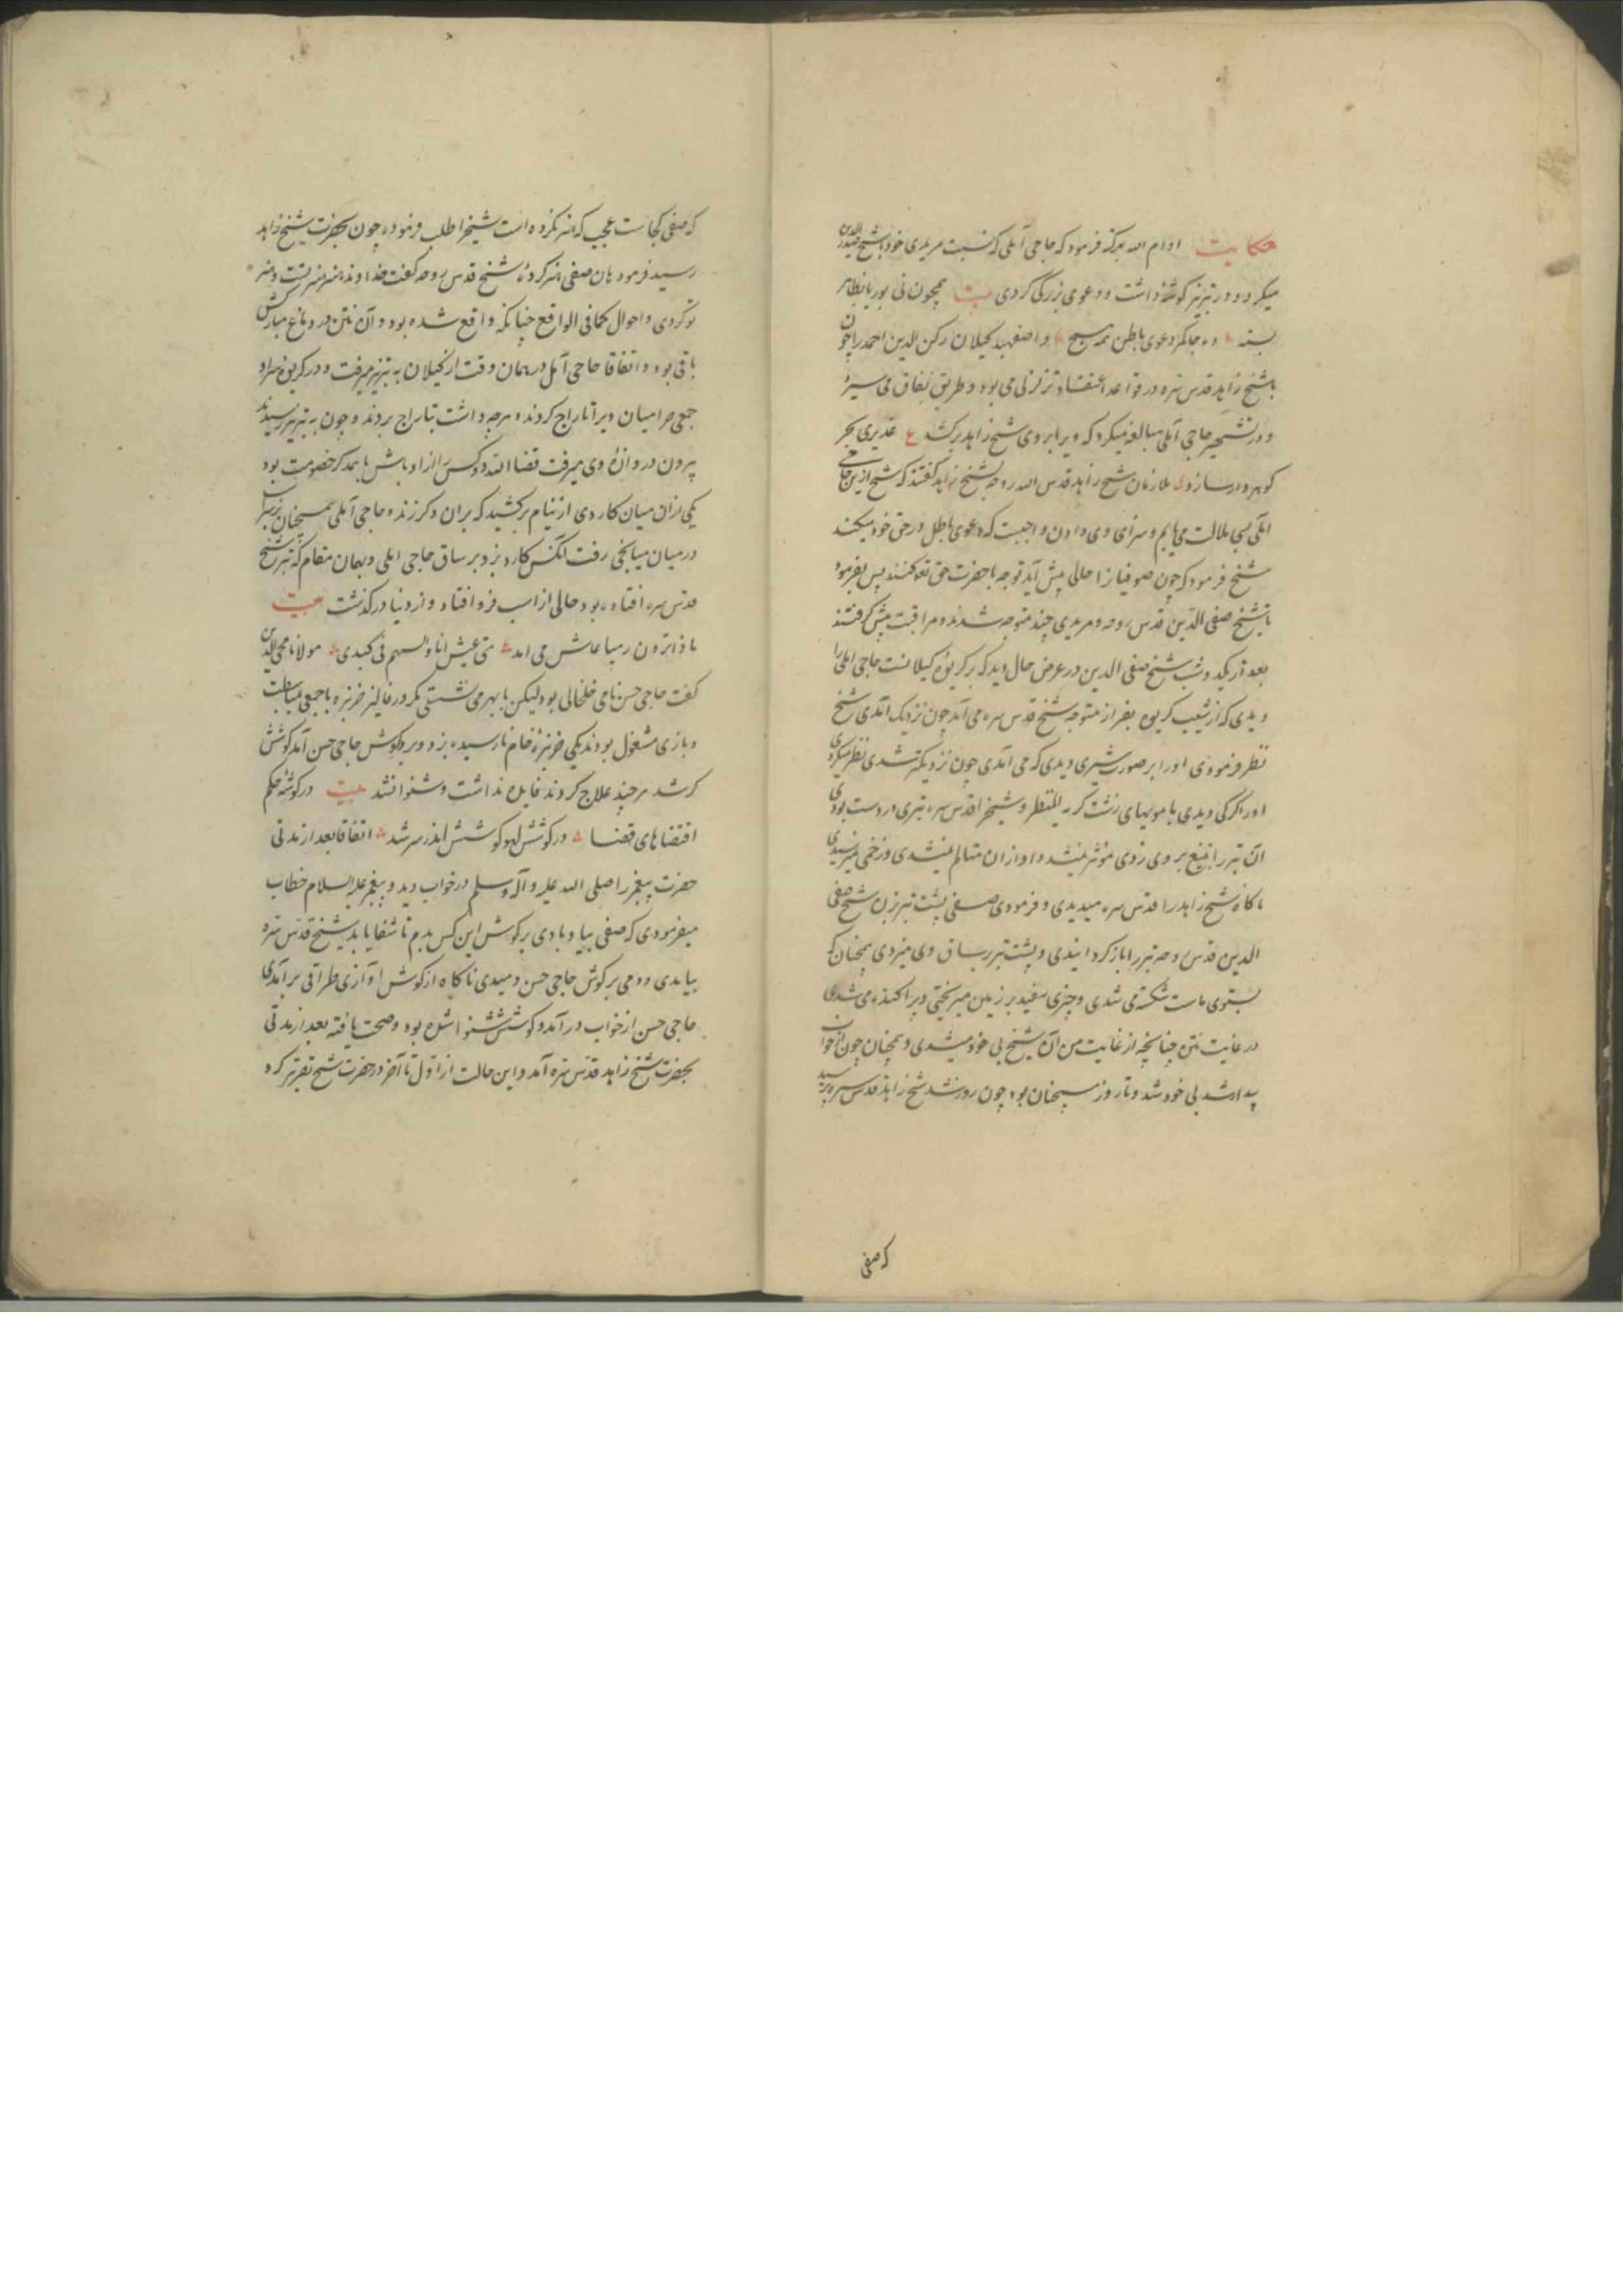 حکایت ادام الله برکته فرمود که حاجی آملی که نسبت مریدی خود با شیخ صدرالدین
میکرد و در تبریز گوشهٔ داشت و دعوی بزرگی کردی بیت همچون نی بوریا بظاهر
بسته و اصفهبد گیلان رکن الدین احمد را چون
با شیخ زاهد قدس سره در قواعد اعتقاد تزلزلی می بود و طریق نفاق می سپرد
و در حاجی آملی مبالغه میکرد که ویرا بروی شیخ زاهد برکشد ع غدیری بحر
گوهردار سازد ملازمان شیخ زاهد قدس الله روحه شیخ زاهد گفتند که شیخ ازین حاجی
املی بسی ملالت می یابیم و سزای وی دادن واجبست که دعوی باطل در حق خود میکند
شیخ فرمود که چون صوفیانرا حالی پیش آید توجه با حضرت حق تعالی کنند پس بفرمود
تا شیخ صفی الدین قدس روحه و مریدی چند متوجه شدند و مراقبت پیش گرفتند
بعد از یکدو شب شیخ صفی الدین در عرض حال دید که بر کریوهٔ گیلانست حاجی املی را
دیدی که از شیب کریوه بفراز متوجه شیخ قدس سره می آمد چون نزدیک آمدی شیخ
نظر فرمودی او را بر صورت شیری دیدی که می آمدی چون نزدیکتر شدی نظر میکردی
او را گرگی دیدی با مویهای زشت کریه المنظر و شیخ را قدس سره تبری در دست بودی
آن تبر را بتیغ بر وی زدی مؤثر نمیشد و او از ان متالم نمیشدی و زخمی نمیرسیدی
ناگاه شیخ زاهد را قدس سره میدیدی و فرمودی صفی پشت تبر بزن شیخ صفی
الدین قدس روحه تبر را باز گردانیدی و پشت تبر بر ساق وی میزدی همچنان که
بستوی ماست شکسته می شدی و چیزی سفید بر زمین میریختی و پراکنده می شدی
در غایت نتن چنانچه از غایت نتن آن شیخ بی خود میشدی و همچنان چون از خواب
بیدار شد بی خود شد و تا روز همچنان بود چون روز شد شیخ زاهد قدس سره پرسید
که صفی
که صفی کجاست عجب که هنر نکرده است شیخ را طلب فرموده چون بحضرت شیخ زاهد
رسید فرمود هان صفی هنر کردهٔ شیخ قدس روحه گفت خداوند هنر هنر تست و هنر
تو کردی و احوال کما فی الواقع چنانکه واقع شده بود و آن نتن در دماغ مبارکش
باقی بود و اتفاقا حاجی آملی در همان وقت از گیلان به تبریز میرفت و در کریوه
جمعی حرامیان ویرا تاراج کردند و هرچه داشت بتاراج بردند و چون به تبریز رسیدند
بیرون دروازهٔ وی میرفت قضا الله دو کس را از اوباش با همدگر خصومت بود
یکی از ان میان کاردی از نیام برکشید که بران دگر زند و حاجی آملی همچنان
در میان میانجی رفت آنکس کارد بزد بر ساق حاجی املی و بهمان مقام که تبر شیخ
قدس سره افتاده بود حالی از اسب فرو افتاد و از دنیا درگذشت بیت
مولانا محیی الدین
گفت حاجی حسن نامی خلخالی بود لیکن مگر در فالیز خربزه با جمعی
و بازی مشغول بودند یکی خربزهٔ خام نارسیده بزد و بر گوش حاجی حسن آمد گوشش
کر شد هر چند علاج کردند فایده نداشت و شنوا نشد بیت در گوشه حکم
اقتضاهای قضا در گوشش لهو گوشش شد اتفاقا بعد از مدتی
حضرت پیغمبر را صلی الله علیه و آله و سلم در خواب دید و پیغمبر علیه السلام خطاب
میفرمودی که صفی بیا و بادی بر گوش این کس بدم تا شفا یابد شیخ قدس سره
بیامدی و دمی بر گوش حاجی حسن دمیدی ناگاه از گوش او آوازی طراقی برآمدی
حاجی حسن از خواب درآمد و گوشش شنوا شده بود و صحت یافته بعد از مدتی
بحضرت شیخ زاهد قدس سره آمد و این حالت از اول تا آخر در حضرت شیخ تقریر کرد